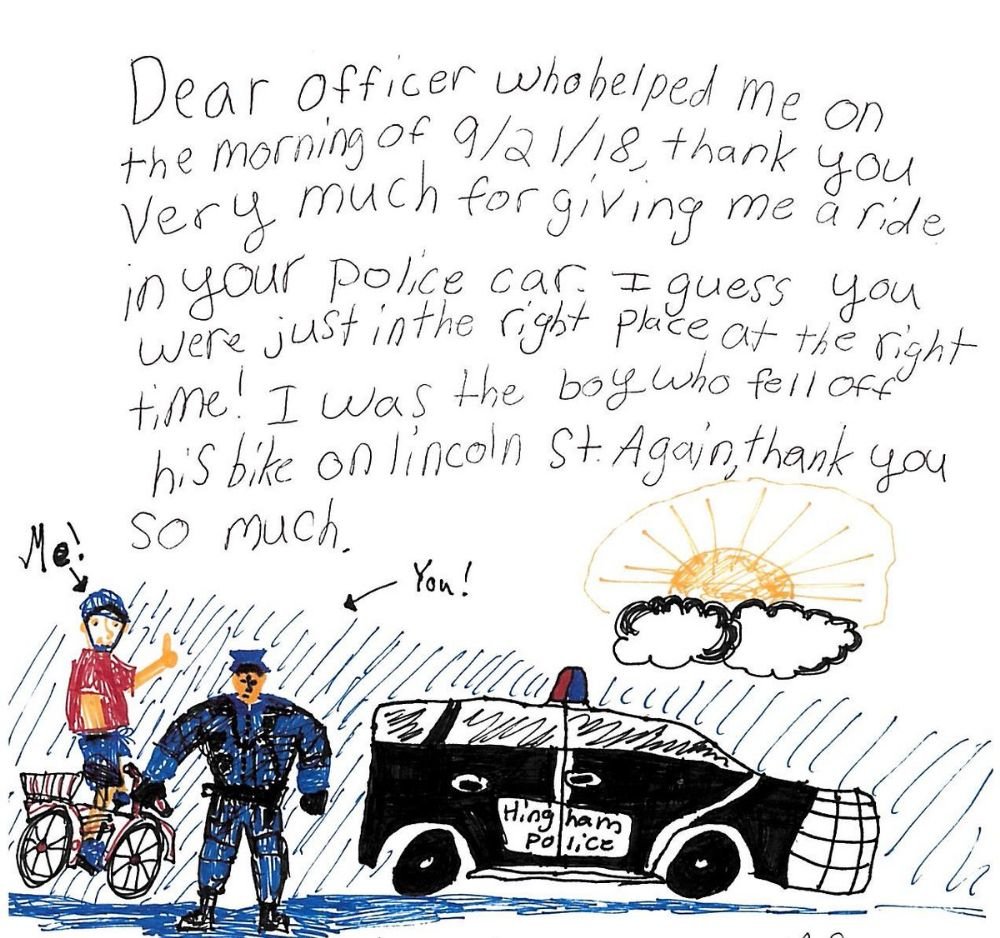 Dear officer who helped me on
the morning of 9/21/18, thank you
Very much for giving me a ride
in your police car. I guess you
were just in the right place at the right
time! I was the boy who fell off
his bike on lincoln St. Again, thank you
so much.
Me!
You!
Hingham
Police